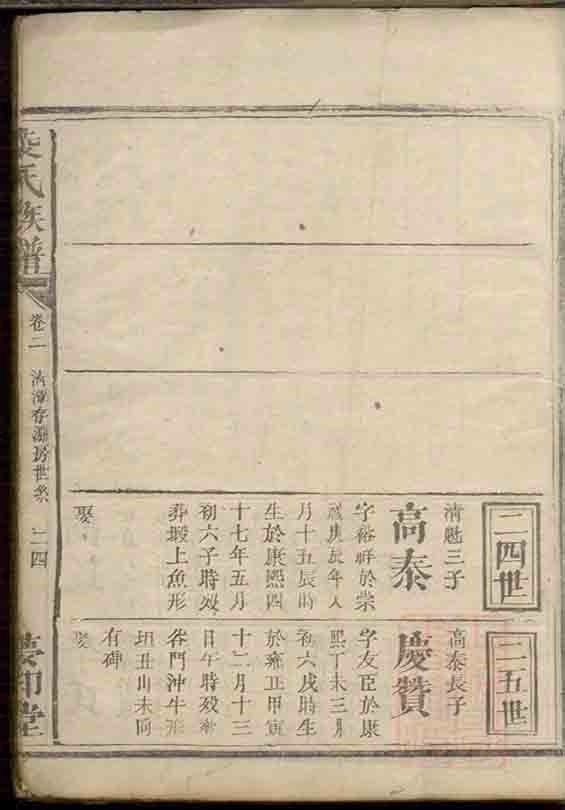 二四世
清魁三子
高泰
字裕祥於崇
禎庚辰年八
月十五辰時
生於康熙四
十七年五月
初六子時歿
葬塅上魚形
娶
二五世
高泰長子
慶贊
字友臣於康
熙丁未三月
初六戌時生
於雍正甲寅
十二月十三
日午時歿葬
谷門沖牛形
坵丑山未向
有碑
娶
氏族譜
卷二
存源房世系
二四
堂